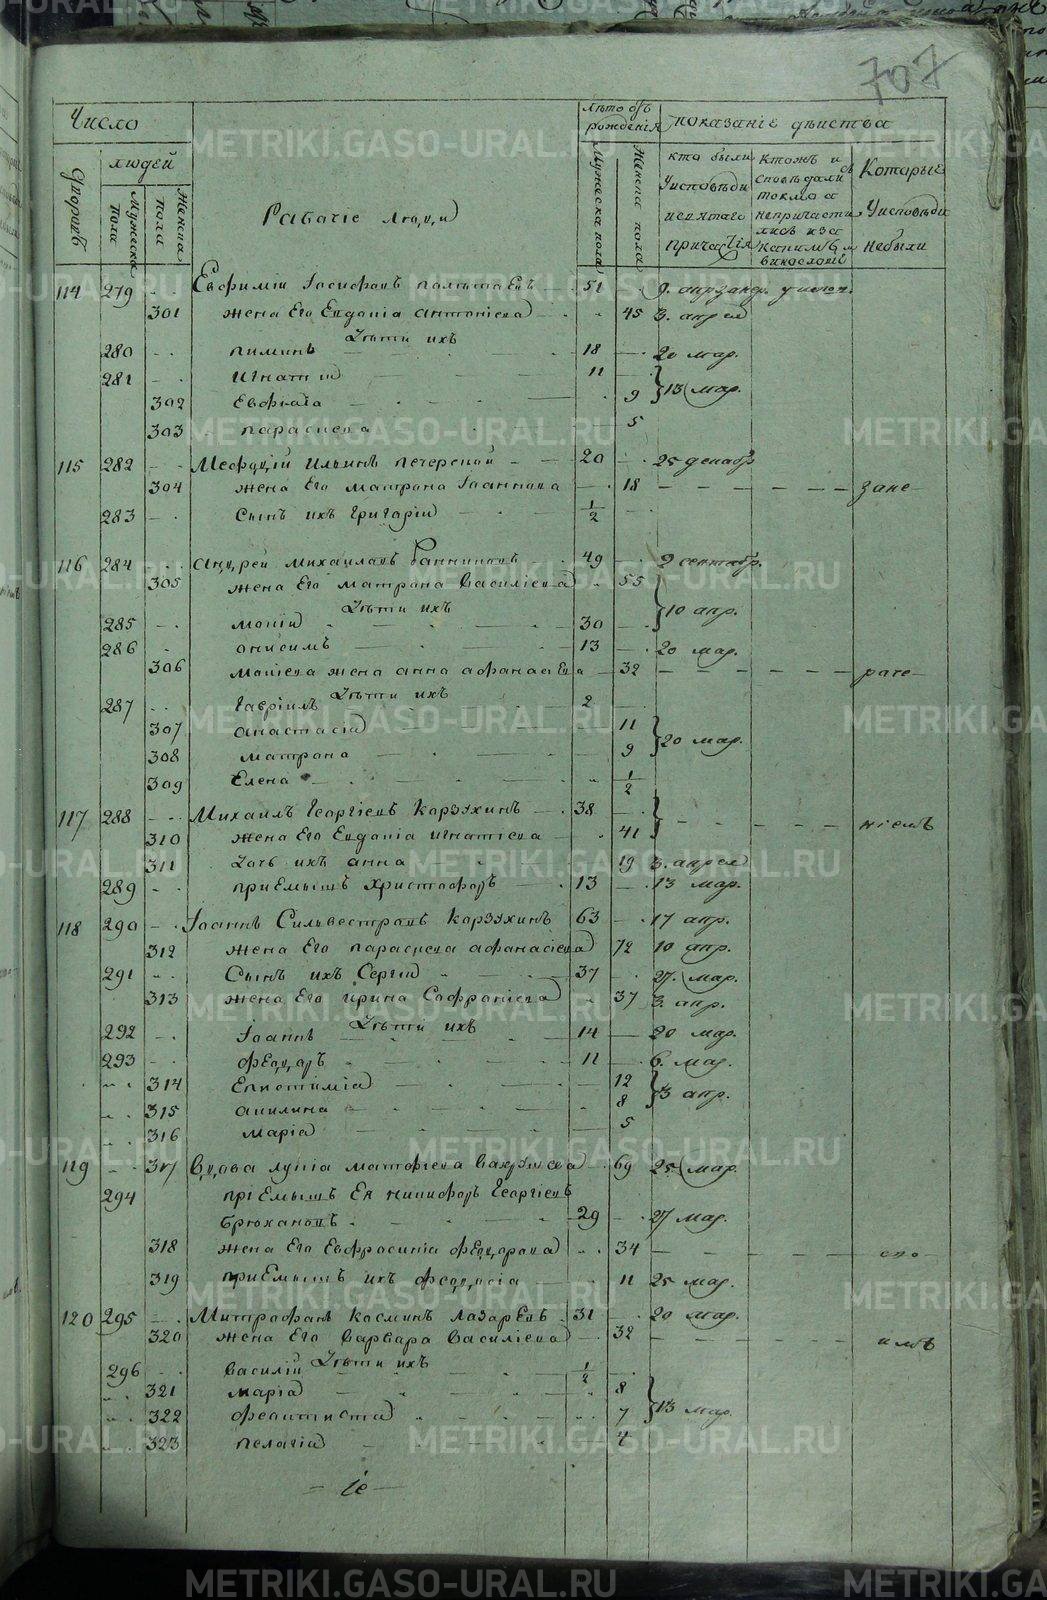 707
Число
людей
лѣто отъ рожденія
показаніе дѣиства
дворовъ
Мужеска пола
Женска пола
Рабочіе Люди
Мужеска пола
Женска пола
кто были уисповѣди исвятаго причастія
Которые уисповѣди небыли
114 279 Евфимій Іосифовъ 51
301 жена Его Евдокіа антоніева 45 3. апрел
Дѣти ихъ
280 пиминъ 18 20 мар.
281 игнатій 11
13 мар.
302 Евфиміа 9
303 параскева 5
115 282 Мефодій Ильинъ печерской 20 25 декабр
304 жена Его матрона Іоаннова 18 зане
283 Сынъ ихъ григорій 1/2
116 284 андрей михаиловъ банниковъ 49 9 сентабр.
305 жена Его матрона василіева 55
10 апр.
Дѣти ихъ
285 мокій 30
286 онисимъ 13 20 мар.
306 мокіева жена анна афанасіева 32 раче
Дѣти ихъ
287 гавріилъ 2
307 анастасіа 11
20 мар.
308 матрона 9
309 Елена 1/2
117 288 Михаилъ Георгіевъ Карзухинъ 38
ніемъ
310 жена Его Евдокіа игнатіева 41
311 дочь ихъ анна 19 3. апрел
289 приЕмышъ христофоръ 13 13 мар.
118 290 Іоаннъ Сильвестровъ Карзухинъ 63 17 апр.
312 жена Его параскева афанасіева 72 10 апр.
291 Сынъ ихъ Сергій 37 27. мар.
313 жена Его ирина Софроніева 37 3. апр.
Дѣти ихъ
292 Іоаннъ 14 20 мар.
293 феодоръ 11 6. мар.
314 Епистиміа 12
3 апр.
315 акилина 8
316 маріа 5
119 317 Вдова лукіа матфіева вахрушева 69 25 мар.
294 пріЕмышъ Ея никифоръ Георгіевъ
брюхановъ 29 27 мар.
318 жена Его Евфросиніа феодорова 34
319 приЕмышъ ихъ феодосіа 11 25 мар.
120 295 Митрофанъ косминъ лазаревъ 31 20 мар.
320 жена Его варвара василіева 32
Дѣти ихъ
296 василій 1/2
321 маріа 8
13 мар.
322 феоктиста 7
323 пелагіа 4
METRIKI.GASO-URAL.RU